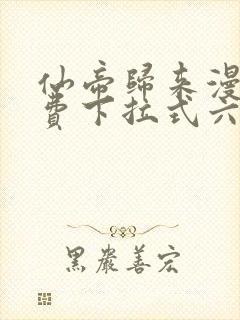 仙帝歸来漫
費下拉式六
黑巖善宏